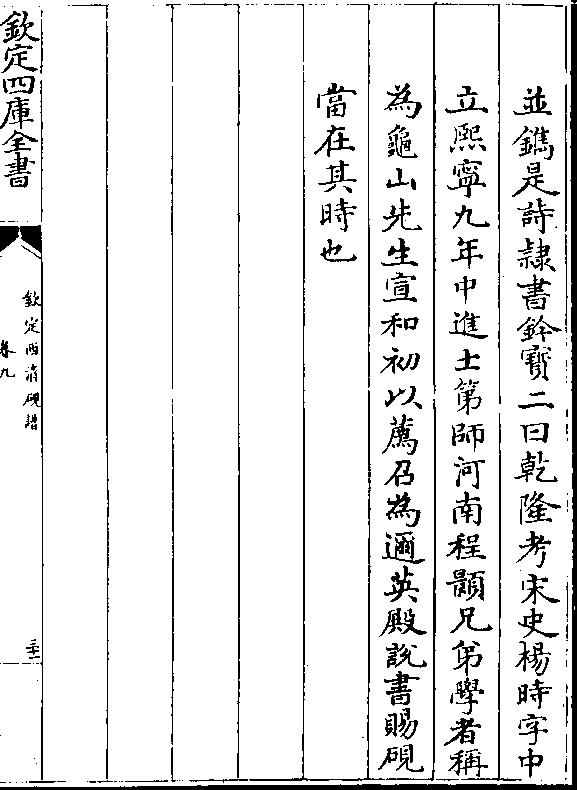 並鐫是詩隷書鈐寳二曰乾隆考宋史楊時字中
立熙寧九年中進士第師河南程顥兄弟學者稱
為龜山先生宣和初以薦召為邇英殿説書賜硯
當在其時也
欽定四庫全書
欽定西清硯譜
卷九